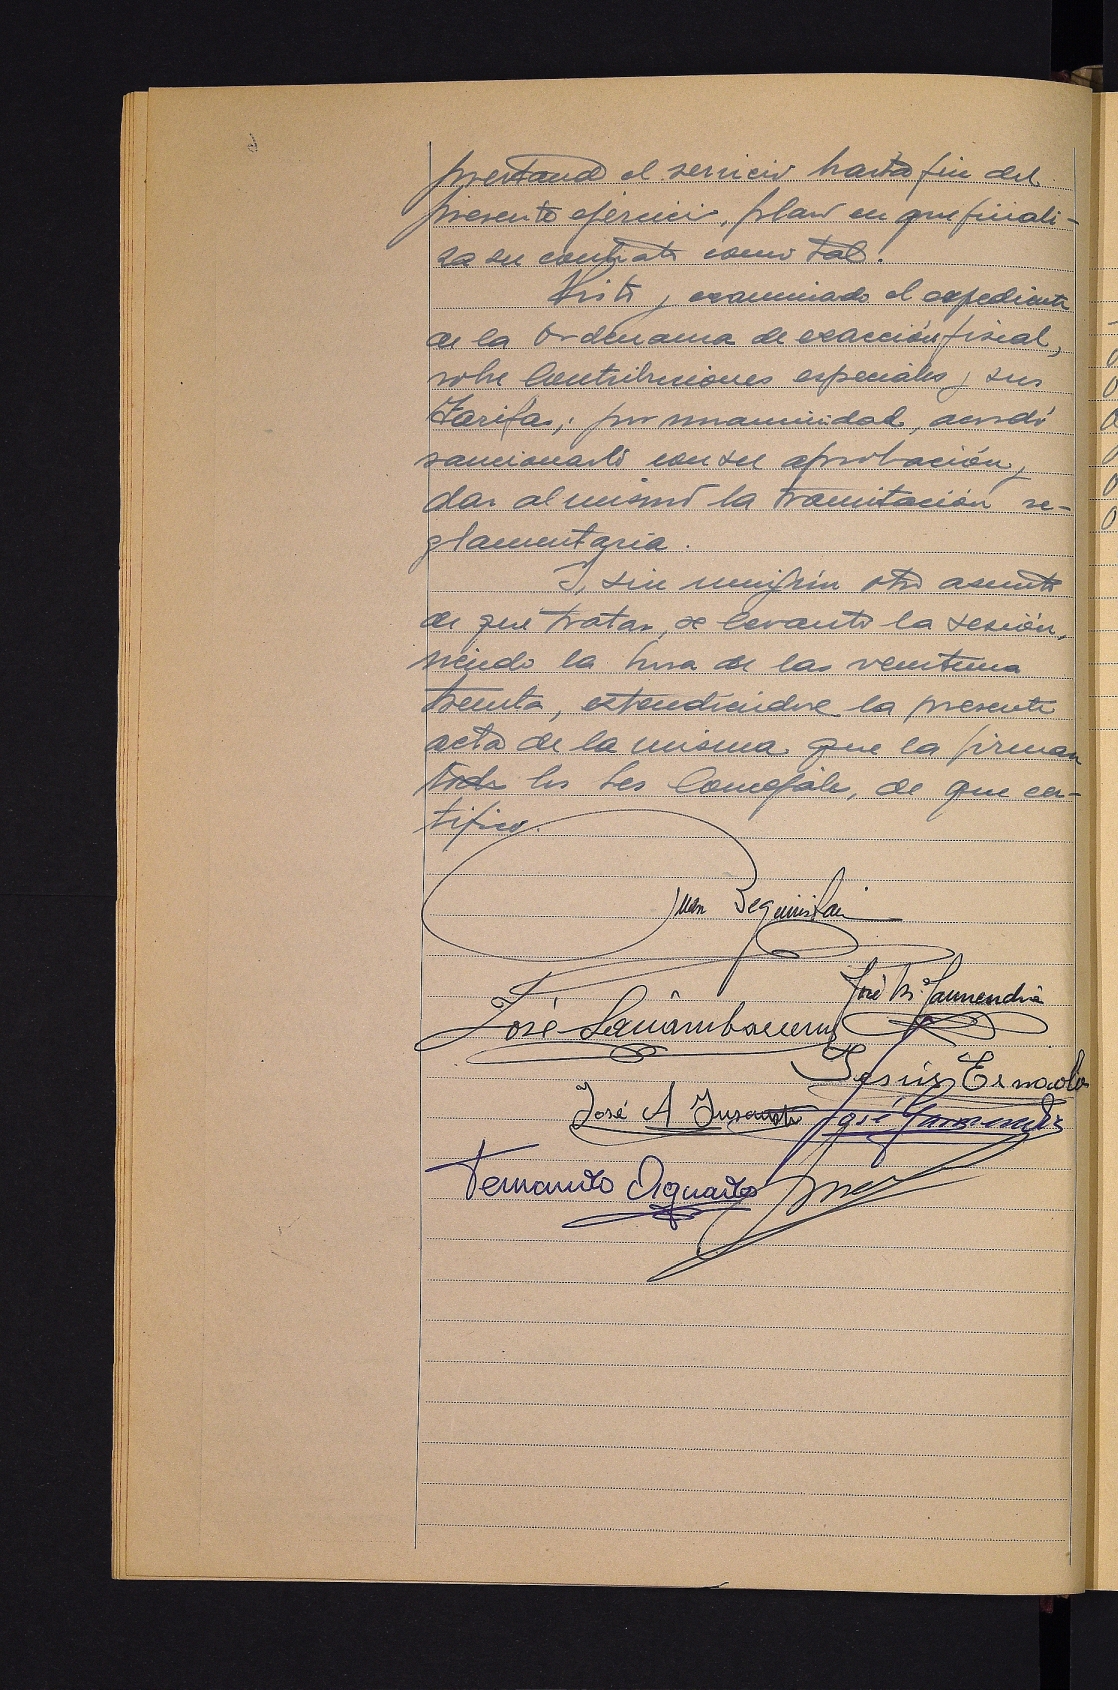 prestando el servicio hasta fin del
presente ejercicio, plazo en que finali-
za su contrato como tal.
Visto y examinado el expediente
de la Ordenanza de exacción fiscal,
sobre Contribuciones especiales y sus
Tarifas, por unanimidad, acordó
sancionarlo con su aprobación y
dar al mismo la tramitación re-
glamentaria.
Y, sin ningún otro asunto
de que tratar, se levantó la sesión,
siendo la hora de las veintiuna
treinta, extendiéndose la presente
acta de la misma que la firman
todos los Sres Concejales, de que cer-
tifico.
Juan Beguiristain
José M. Garmendia
José
Jesús
José A
José Garmendia
Fernando